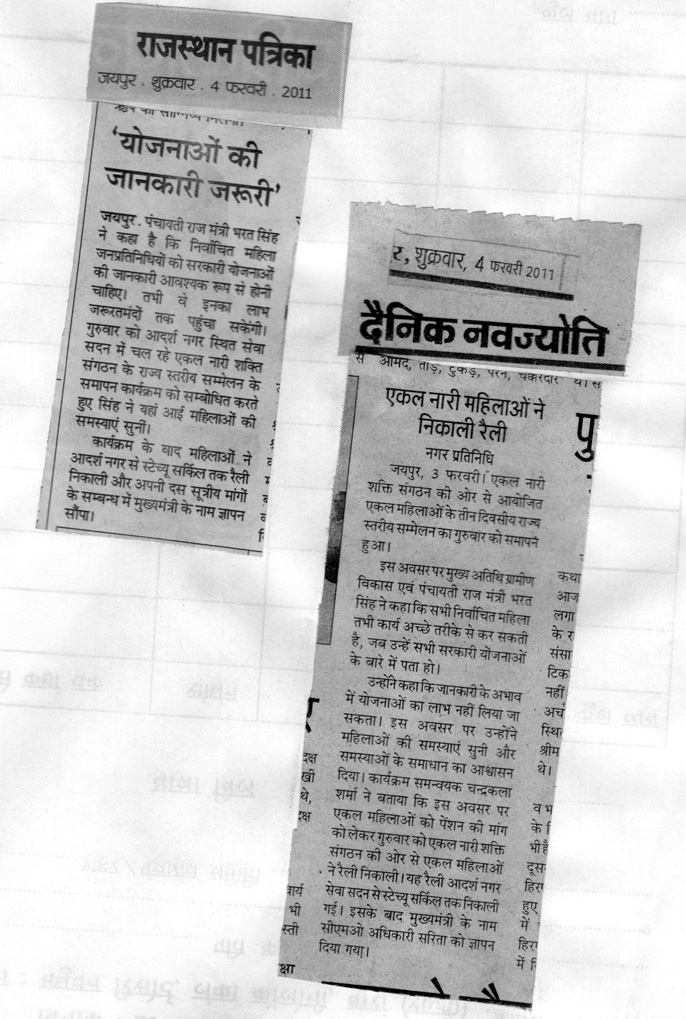 राजस्थान पत्रिका
जयपुर . शुक्रवार . 4 फरवरी . 2011
'योजनाओं की
जानकारी जरूरी'
जयपुर. पंचायती राज मंत्री भरत सिंह
ने कहा है कि निर्वाचित महिला
जनप्रतिनिधियों को सरकारी योजनाओं
की जानकारी आवश्यक रूप से होनी
चाहिए। तभी वे इनका लाभ
जरूरतमंदों तक पहुंचा सकेंगी।
गुरुवार को आदर्श नगर स्थित सेवा
सदन में चल रहे एकल नारी शक्ति
संगठन के राज्य स्तरीय सम्मेलन के
समापन कार्यक्रम को सम्बोधित करते
हुए सिंह ने यहां आई महिलाओं की
समस्याएं सुनी।
कार्यक्रम के बाद महिलाओं ने
आदर्श नगर से स्टेच्यू सर्किल तक रैली
निकाली और अपनी दस सूत्रीय मांगों
के सम्बन्ध में मुख्यमंत्री के नाम ज्ञापन
सौंपा।
र, शुक्रवार, 4 फरवरी 2011
दैनिक नवज्योति
से आमद, तोड़, टुकड़े, परन, चक्करदार
था। स
एकल नारी महिलाओं ने
निकाली रैली
नगर प्रतिनिधि
जयपुर, 3 फरवरी। एकल नारी
शक्ति संगठन की ओर से आयोजित
एकल महिलाओं के तीन दिवसीय राज्य
स्तरीय सम्मेलन का गुरुवार को समापन
हुआ।
इस अवसर पर मुख्य अतिथि ग्रामीण
विकास एवं पंचायती राज मंत्री भरत
सिंह ने कहा कि सभी निर्वाचित महिला
तभी कार्य अच्छे तरीके से कर सकती
है, जब उन्हें सभी सरकारी योजनाओं
के बारे में पता हो।
उन्होंने कहा कि जानकारी के अभाव
में योजनाओं का लाभ नहीं लिया जा
सकता। इस अवसर पर उन्होंने
महिलाओं की समस्याएं सुनी और
समस्याओं के समाधान का आश्वासन
दिया। कार्यक्रम समन्वयक चन्द्रकला
शर्मा ने बताया कि इस अवसर पर
एकल महिलाओं को पेंशन की मांग
को लेकर गुरुवार को एकल नारी शक्ति
संगठन की ओर से एकल महिलाओं
ने रैली निकाली। यह रैली आदर्श नगर
सेवा सदन से स्टेच्यू सर्किल तक निकाली
गई। इसके बाद मुख्यमंत्री के नाम
सीएमओ अधिकारी सरिता को ज्ञापन
दिया गया।
पु
कथा
आज
लगा
के र
संसा
टिक
नहीं
अर्च
स्थित
श्रीम
थे।
व भ
के f
भी है
दूस
हिर
हुए
में
हिर
में f
दक्ष
खीं
थे,
दक्ष
वार्य
भी
स्ती
क्षा